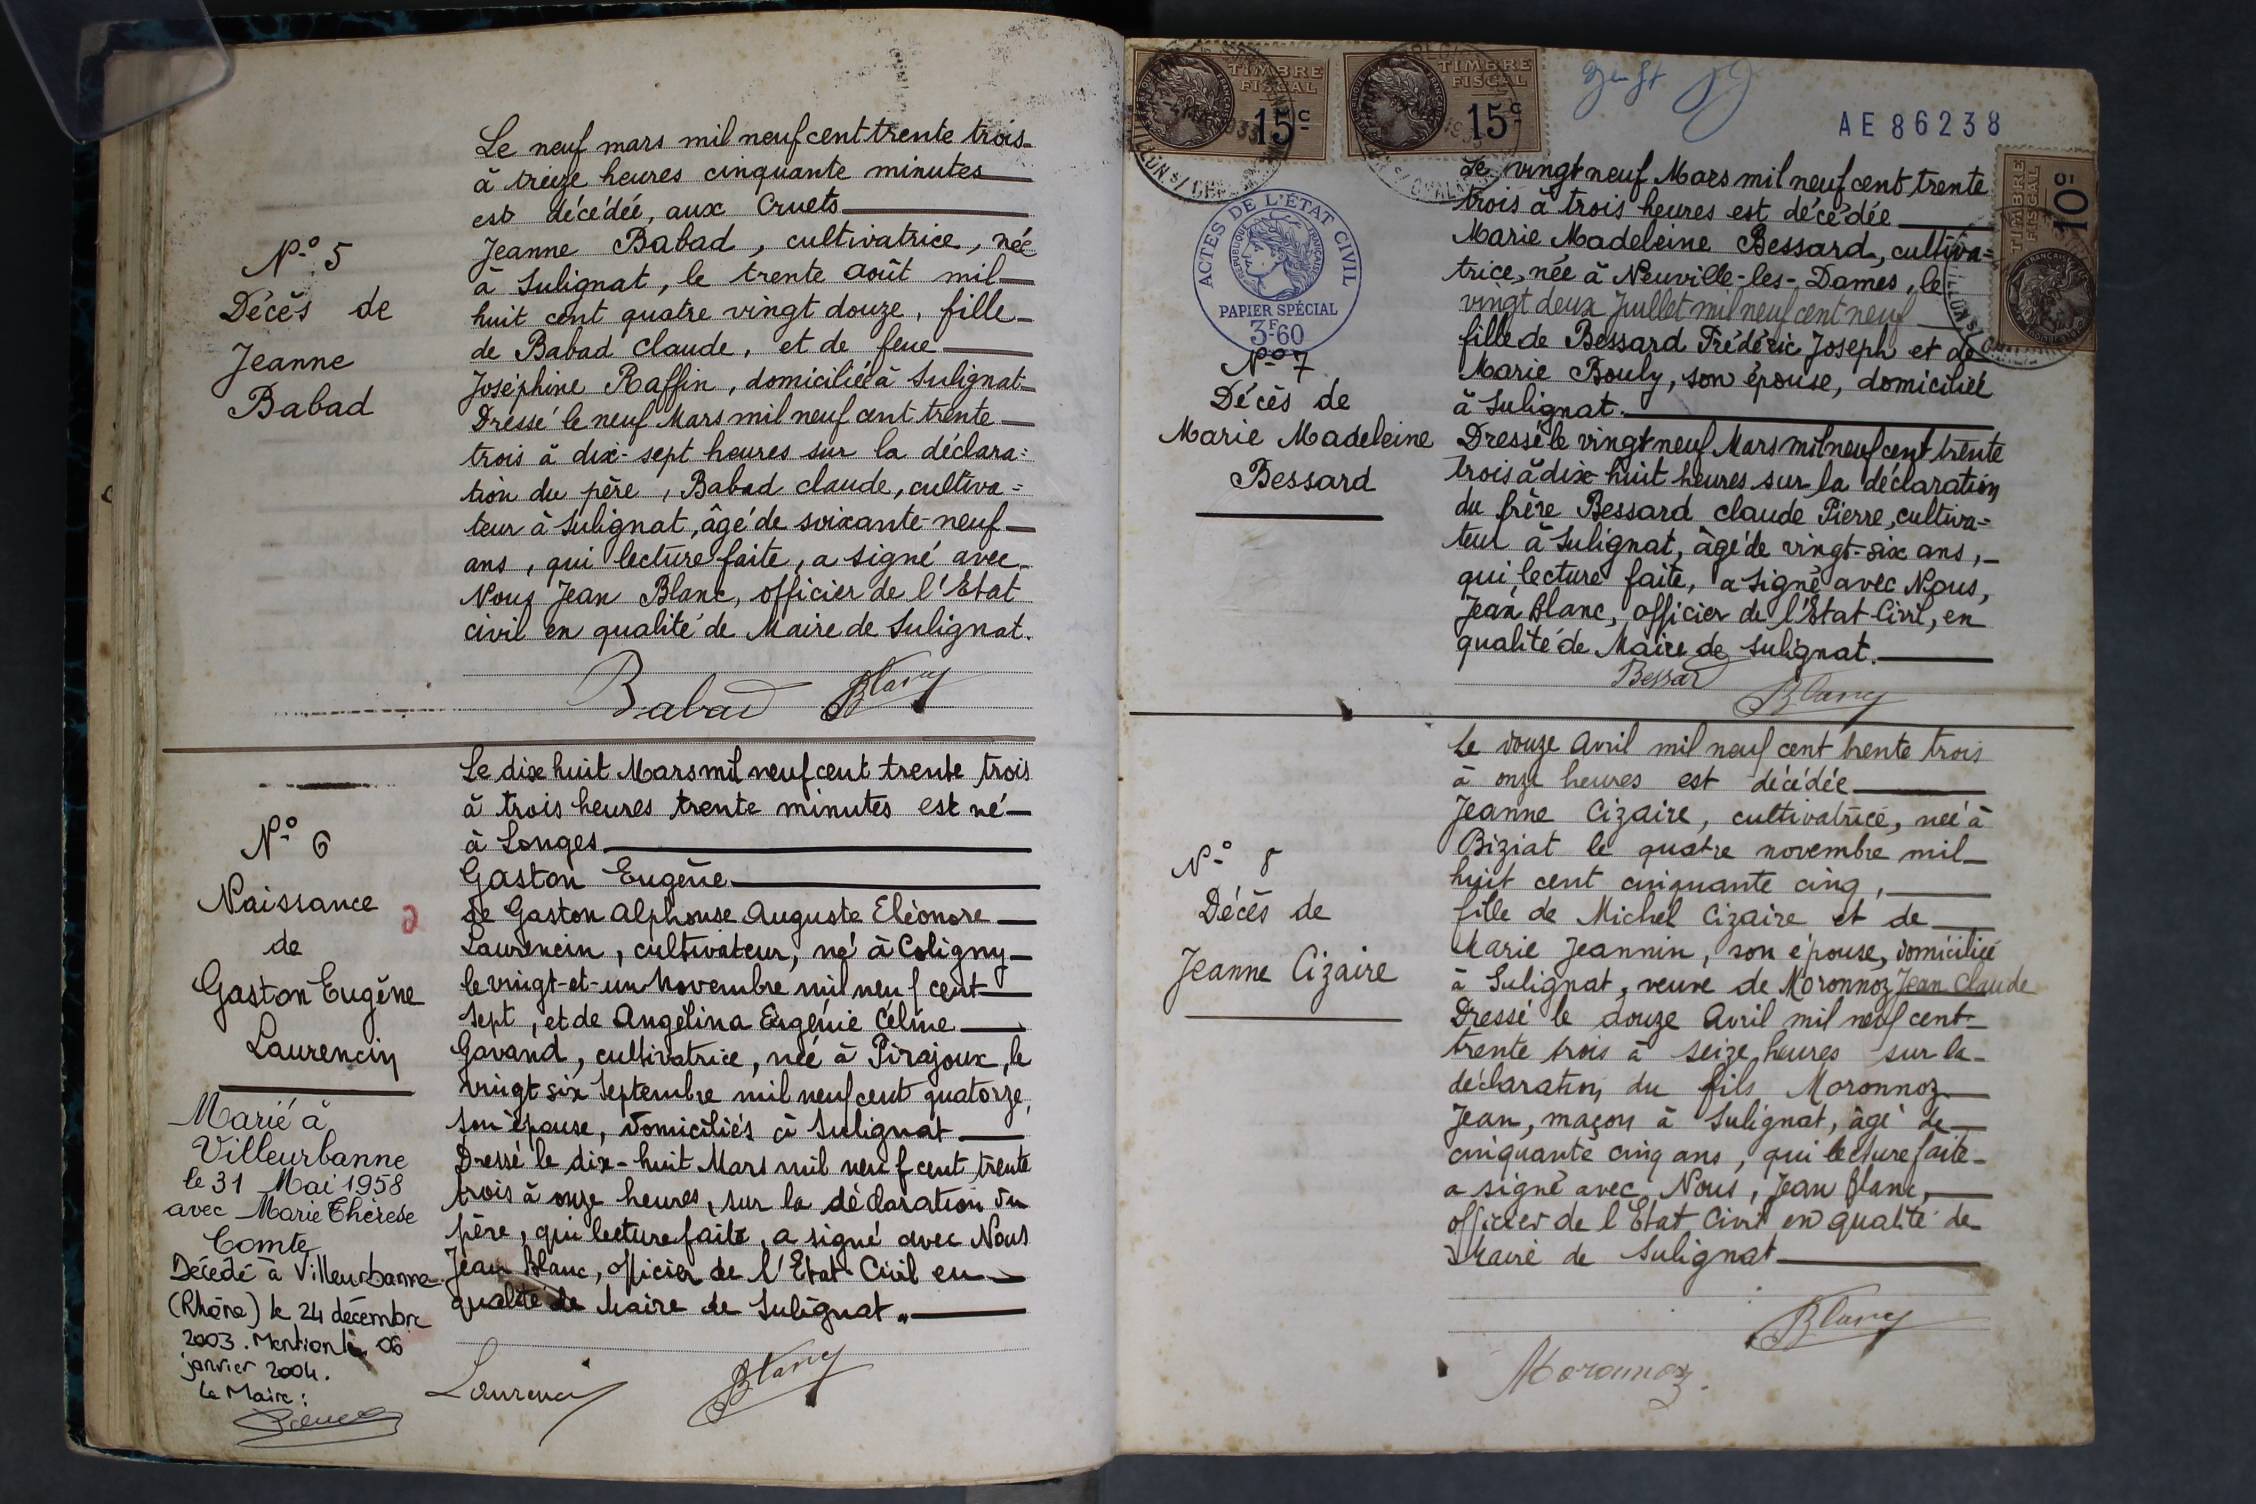 N.o 5
Décès de
Jeanne
Babad
Le neuf mars mil neuf cent trente trois
à treize heures cinquante minutes
est décédée, aux Cruets
Jeanne Babad, cultivatrice, née
à Sulignat, le trente août mil
huit cent quatre vingt douze, fille
de Babad Claude, et de feue
Joséphine Raffin, domiciliée à Sulignat
Dressé le neuf Mars mil neuf cent trente
trois à dix-sept heures sur la déclara=
tion du père, Babad Claude, cultiva=
teur à Sulignat, âgé de soixante-neuf
ans, qui lecture faite, a signé avec
Nous Jean Blanc, officier de l'Etat
civil en qualité de Maire de Sulignat.
Babad Blanc
N.o 6
Naissance
de
Gaston Eugène
Laurencin
Marié à
Villeurbanne
le 31 Mai 1958
avec Marie Thérèse
Comte
Décédé à Villeurbanne
(Rhône) le 24 décembre
2003. Mention le 06
janvier 2004.
Le Maire :
Le dix huit Mars mil neuf cent trente trois
à trois heures trente minutes est né
à Longes
Gaston Eugène
de Gaston Alphonse Auguste Eléonore
Laurencin, cultivateur, né à Coligny
le vingt-et-un Novembre mil neuf cent
sept, et de Angélina Eugénie Céline
Gavand, cultivatrice, née à Pirajoux, le
vingt six Septembre mil neuf cent quatorze,
son épouse, domiciliés à Sulignat
Dressé le dix-huit Mars mil neuf cent trente
trois à onze heures, sur la déclaration du
père, qui lecture faite, a signé avec Nous
Jean Blanc, officier de l'Etat-Civil en
qualité de Maire de Sulignat.
Laurencin Blanc
TIMBRE
FISCAL
15c
TIMBRE
FISCAL
15c
AE 86238
TIMBRE
FISCAL
10c
ACTES DE L'ÉTAT CIVIL
RÉPUBLIQUE FRANÇAISE
PAPIER SPÉCIAL
3F60
N.o 7
Décès de
Marie Madeleine
Bessard
Le vingt neuf Mars mil neuf cent trente
trois à trois heures est décédée
Marie Madeleine Bessard, cultiva=
trice, née à Neuville-les-Dames, le
vingt deux Juillet mil neuf cent neuf
fille de Bessard Frédéric Joseph et de
Marie Bouly, son épouse, domiciliée
à Sulignat.
Dressé le vingt neuf Mars mil neuf cent trente
trois à dix-huit heures sur la déclaration
du frère Bessard Claude Pierre, cultiva=
teur à Sulignat, âgé de vingt-six ans,
qui, lecture faite, a signé avec Nous,
Jean Blanc, officier de l'Etat-Civil, en
qualité de Maire de Sulignat.
Bessard
Blanc
N.o 8
Décès de
Jeanne Cizaire
Le douze Avril mil neuf cent trente trois
à onze heures est décédée
Jeanne Cizaire, cultivatrice, née à
Biziat le quatre novembre mil
huit cent cinquante cinq,
fille de Michel Cizaire et de
Marie Jeannin, son épouse, domiciliée
à Sulignat, veuve de Moronnoz Jean Claude
Dressé le douze Avril mil neuf cent
trente trois à seize heures sur la
déclaration du fils Moronnoz
Jean, maçon à Sulignat, âgé de
cinquante cinq ans, qui lecture faite
a signé avec Nous, Jean Blanc,
officier de l'Etat Civil en qualité de
Maire de Sulignat
Blanc
Moronnoz.